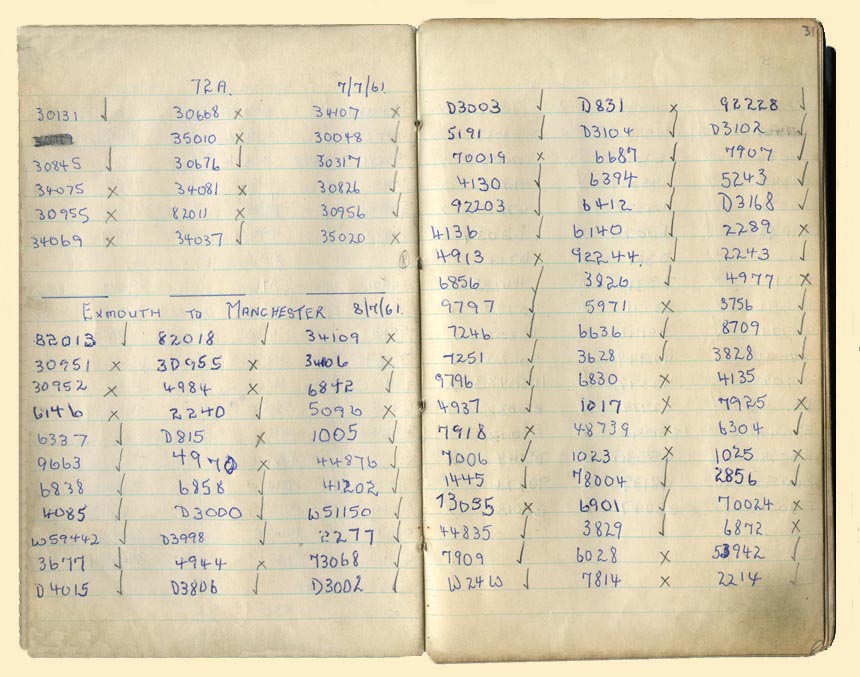 72A. 7/7/61.
30131 ✓ 30668 × 34107 ×
35010 × 30048 ✓
30845 ✓ 30676 ✓ 30317 ✓
34075 × 34081 × 30826 ✓
30955 × 82011 × 30956 ✓
34069 × 34037 ✓ 35020 ×
EXMOUTH TO MANCHESTER 8/7/61.
82013 ✓ 82018 ✓ 34109 ×
30951 × 30955 × 34106 ×
30952 × 4984 × 6842 ✓
6146 × 2240 ✓ 5096 ×
6337 ✓ D815 × 1005 ✓
9663 ✓ 4970 × 44876 ✓
6838 ✓ 6858 ✓ 41202 ✓
4085 ✓ D3000 ✓ W51150 ✓
W59442 ✓ D3998 ✓ 2277 ✓
3677 ✓ 4944 × 73068 ✓
D4015 ✓ D3806 ✓ D3002 ✓
31
D3003 ✓ D831 × 92228 ✓
5191 ✓ D3104 ✓ D3102 ✓
70019 × 6687 ✓ 7907 ✓
4130 ✓ 6394 ✓ 5243 ✓
92203 ✓ 6412 ✓ D3168 ✓
4136 ✓ 6140 ✓ 2289 ×
4913 × 92244. ✓ 2243 ✓
6856 ✓ 3826 ✓ 4977 ×
9797 ✓ 5971 × 3756 ✓
7246 ✓ 6636 ✓ 8709 ✓
7251 ✓ 3628 ✓ 3828 ✓
9796 ✓ 6830 × 4135 ✓
4937 ✓ 1017 × 7925 ×
7918 × 48739 × 6304 ✓
7006 ✓ 1023 × 1025 ×
1445 ✓ 78004 ✓ 2856 ✓
73035 × 6901 ✓ 70024 ×
44835 ✓ 3829 ✓ 6872 ×
7909 ✓ 6028 × 53942 ✓
W24W ✓ 7814 × 2214 ✓